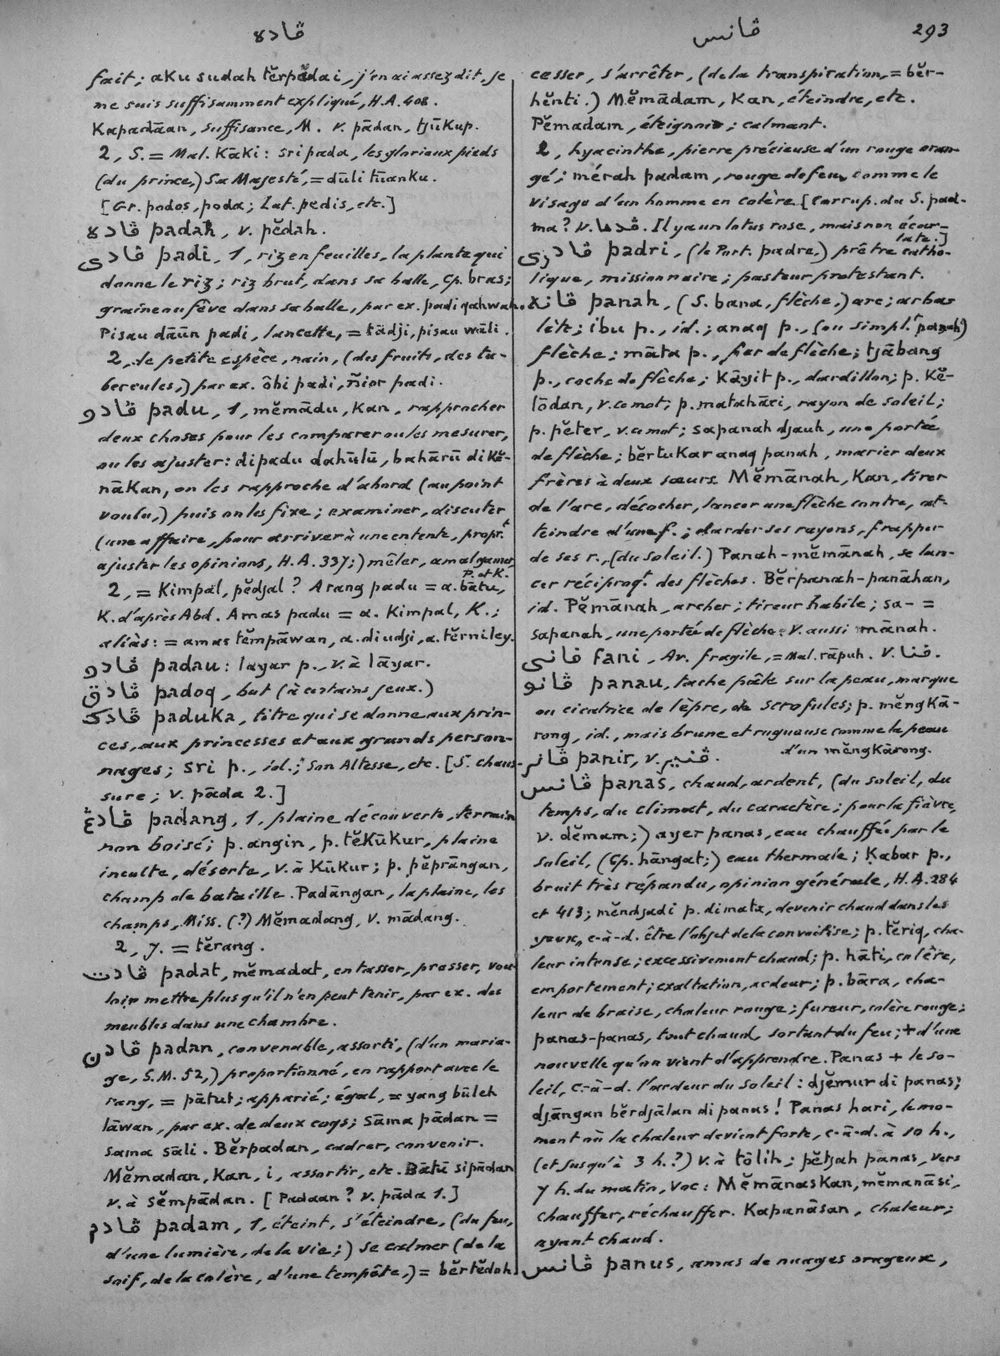 ڤاده
ڤانس
293
fait; aku sudah tĕrpĕdai, j'en ai assez dit, je
me suis suffisamment expliqué, H.A. 408.
Kapadāan, suffisance, M. v. pādan, tjūkup.
2, S. = Mal. Kāki: sri pada, les glorieux pieds
(du prince,) Sa Majesté, = dūli tūanku.
[Gr. podos, poda; Lat. pedis, etc.]
ڤاده padah, v. pĕdah.
ڤادى padi, 1, riz en feuilles, la plante qui
donne le riz; riz brut, dans sa balle, Cp. bras;
graine ou fève dans sa balle, par ex. padi qahwah.
Pisau dāūn padi, lancette, = tādji, pisau wāli.
2, de petite espèce, nain, (des fruits, des tu-
bercules,) par ex. ōbi padi, ñior padi.
ڤادو padu, 1, mĕmādu, Kan, rapprocher
deux choses pour les comparer ou les mesurer,
ou les ajuster: dipadu dahūlū, bahārū di Kĕ-
nāKan, on les rapproche d'abord (au point
voulu,) puis on les fixe; examiner, discuter
(une affaire, pour arriver à une entente, proprt
ajuster les opinions, H.A. 337;) mêler, amalgamer,
P. et K.
2, = Kimpal, pĕdjal? Arang padu = a. bātu,
K. d'après Abd. Amas padu = a. Kimpal, K.;
aliàs: = amas tĕmpāwan, a. diudji, a. tĕrniley.
ڤادو padau: layar p., v. à lāyar.
ڤادق padoq, but (à certains jeux.)
ڤادك paduka, titre qui se donne aux prin-
ces, aux princesses et aux grands person-
nages; sri p., id.; Son Altesse, etc. [S. chaus-
sure; v. pāda 2.]
ڤادڠ padang, 1, plaine découverte, terrain
non boisé; p. angin, p. tĕKūKur, plaine
inculte, déserte, v. à KūKur; p. pĕprāngan,
champ de bataille. Padāngan, la plaine, les
champs, Miss. (?) Mĕmadang, v. mādang.
2, J. = tĕrang.
ڤادت padat, mĕmadat, entasser, presser, vou-
loir mettre plus qu'il n'en peut tenir, par ex. des
meubles dans une chambre.
ڤادن padan, convenable, assorti, (d'un maria-
ge, S.M. 52,) proportionné, en rapport avec le
rang, = pātut; apparié; égal, = yang būleh
lāwan, par ex. de deux coqs; sāma pādan =
sama sāli. Bĕrpadan, cadrer, convenir.
Mĕmadan, Kan, i, assortir, etc. Bātū sipādan
v. à sĕmpādan. [Padaan? v. pāda 1.]
ڤادم padam, 1, éteint, s'éteindre, (du feu,
d'une lumière, de la vie;) se calmer (de la
soif, de la colère, d'une tempête,) = bĕrtĕdoh
cesser, s'arrêter, (de la transpiration, = bĕr-
hĕnti.) Mĕmādam, Kan, éteindre, etc.
Pĕmadam, éteignoir; calmant.
2, hyacinthe, pierre précieuse d'un rouge oran-
gé; mérah padam, rouge de feu, comme le
visage d'un homme en colère [Corrup. du S. pad-
ma? v. ڤدما. Il y a un lotus rose, mais non écar-
late.]
ڤادرى padri, (le Port. padre,) prêtre catho-
lique, missionnaire; pasteur protestant.
ڤانه panah, (S. bana, flèche,) arc; arba-
lète; ibu p., id.; anaq p., (ou simpl. panah)
flèche; māta p., fer de flèche; tjābang
p., coche de flèche; Kāyit p., dardillon; p. Kĕ-
lōdan, v. ce mot; p. matahāri, rayon de soleil;
p. pĕter, v. ce mot; sapanah djauh, une portée
de flèche; bĕrtuKar anaq panah, marier deux
frères à deux sœurs. Mĕmānah, Kan, tirer
de l'arc, décocher, lancer une flèche contre, at-
teindre d'une f.; darder ses rayons, frapper
de ses r., (du soleil.) Panah-mĕmānah, se lan-
cer réciproqt des flèches. Bĕrpanah-panāhan,
id. Pĕmānah, archer; tireur habile; sa- =
sapanah, une portée de flèche. V. aussi mānah.
ڤانى fani, Ar. fragile, = Mal. rāpuh. V. فنا.
ڤانو panau, tache pâle sur la peau, marque
ou cicatrice de lèpre, de scrofules; p. mĕngKā-
rong, id., mais brune et rugueuse comme la peau
d'un mĕngKārong.
ڤانر panir, v. ڤنير.
ڤانس panas, chaud, ardent, (du soleil, du
temps, du climat, du caractère; pour la fièvre,
v. dĕmam;) ayer panas, eau chauffée par le
soleil, (Cp. hāngat;) eau thermale; Kabar p.,
bruit très répandu, opinion générale, H.A. 284
et 413; mĕndjadi p. dimata, devenir chaud dans les
yeux, c-à-d. être l'objet de la convoitise; p. tĕriq, cha-
leur intense; excessivement chaud; p. hāti, colère,
emportement; exaltation, ardeur; p. bāra, cha-
leur de braise, chaleur rouge; fureur, colère rouge;
panas-panas, tout chaud, sortant du feu; + d'une
nouvelle qu'on vient d'apprendre. Panas + le so-
leil, c.-à-d. l'ardeur du soleil: djĕmur di panas;
djāngan bĕrdjālan di panas! Panas hari, le mo-
ment où la chaleur devient forte, c-à-d. à 10 h.,
(et jusqu'à 3 h.?) v. à tōlih; pĕtjah panas, vers
7 h. du matin, Voc: MĕmānasKan, mĕmanāsi,
chauffer, réchauffer. Kapanāsan, chaleur;
ayant chaud.
ڤانس panus, amas de nuages orageux,